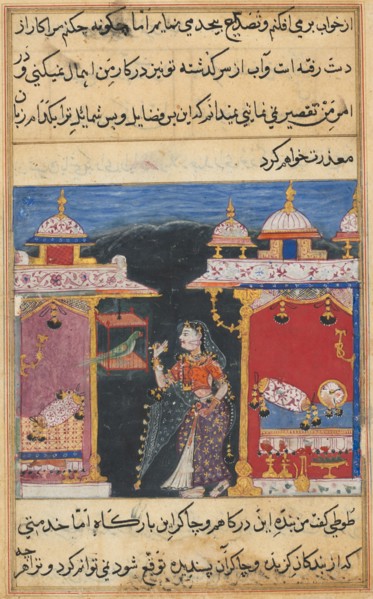 از خواب برمی افکنم و تصدیع بیحد می نمایم اما چگونه چکنم سر کار از
دست رفته است و آب از سر گذشته تو نیز در کار من اهمال نمیکنی و در
امور من تقصیر نمی نمایی نمیدانم که این بس فضایل و بس شمایل ترا بکدام زبان
معذرت خواهم کرد
طوطی کفت من بنده این درکاهم و چاکر این بارکاه اما خدمتی
که از بندکان کزیده و چاکران پسندیده توقع شود نمی توانم کرد و ترا هر چه